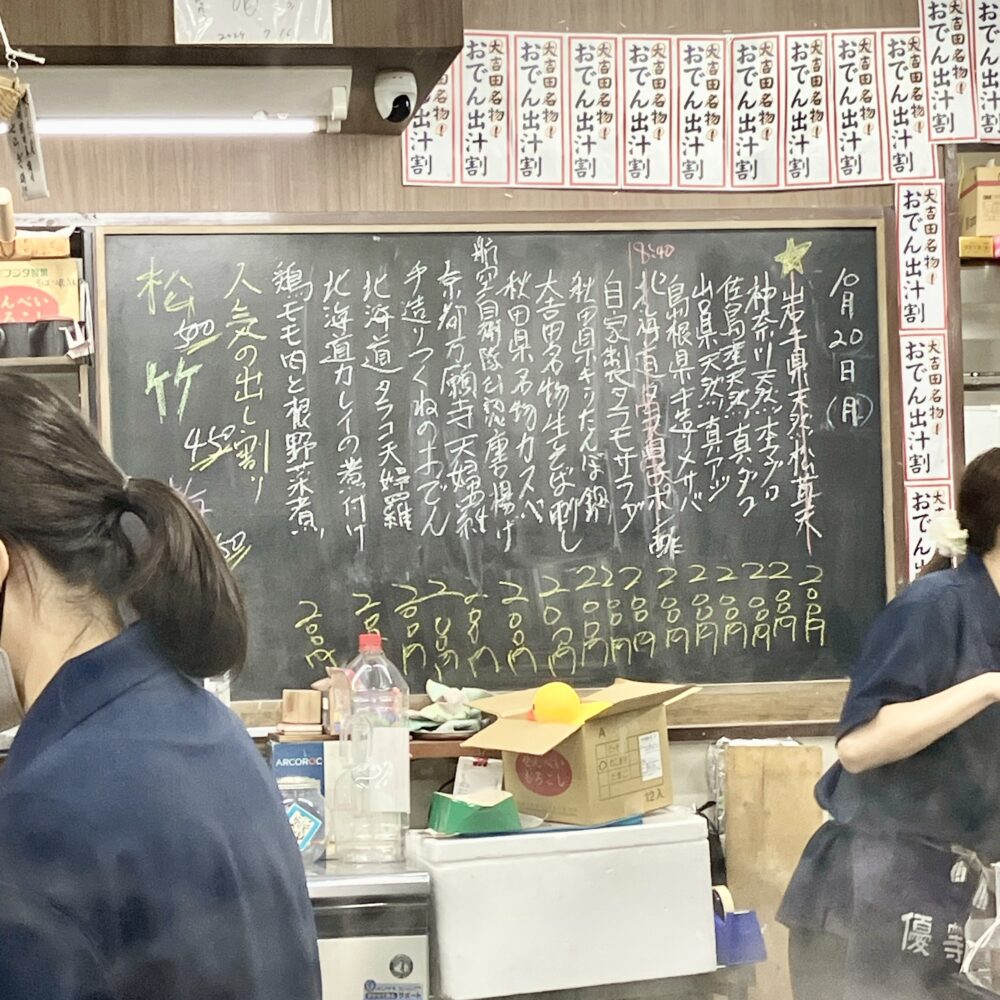 10月20日(月)
岩手県天然松茸天 200円
神奈川天然本マグロ 200円
佐島産天然真ダコ 200円
山口県天然真アジ 200円
島根県手造〆サバ 200円
18:40
北海道タラ白子ポン酢 200円
自家製タラモサラダ 200円
秋田県きりたんぽ鍋 200円
大吉田名物生そば刺し 200円
秋田県名物カスベ 200円
航空自衛隊公認唐揚げ 200円
京都万願寺天婦羅 200円
手造りつくねのおでん 200円
北海道タラコ天婦羅 200円
北海道カレイの煮付け 200円
鶏モモ肉と根野菜煮 200円
人気の出し割り
松 500
竹 450
大吉田名物!
おでん出汁割
大吉田名物!
おでん出汁割
大吉田名物!
おでん出汁割
大吉田名物!
おでん出汁割
大吉田名物!
おでん出汁割
大吉田名物!
おでん出汁割
大吉田名物!
おでん出汁割
大吉田名物!
おでん出汁割
大吉田名物!
おでん出汁割
大吉田名物!
おでん出汁割
大吉田名物!
おでん出汁割
ARCOROC
せんべい
おろこし
12入
サポート
優等